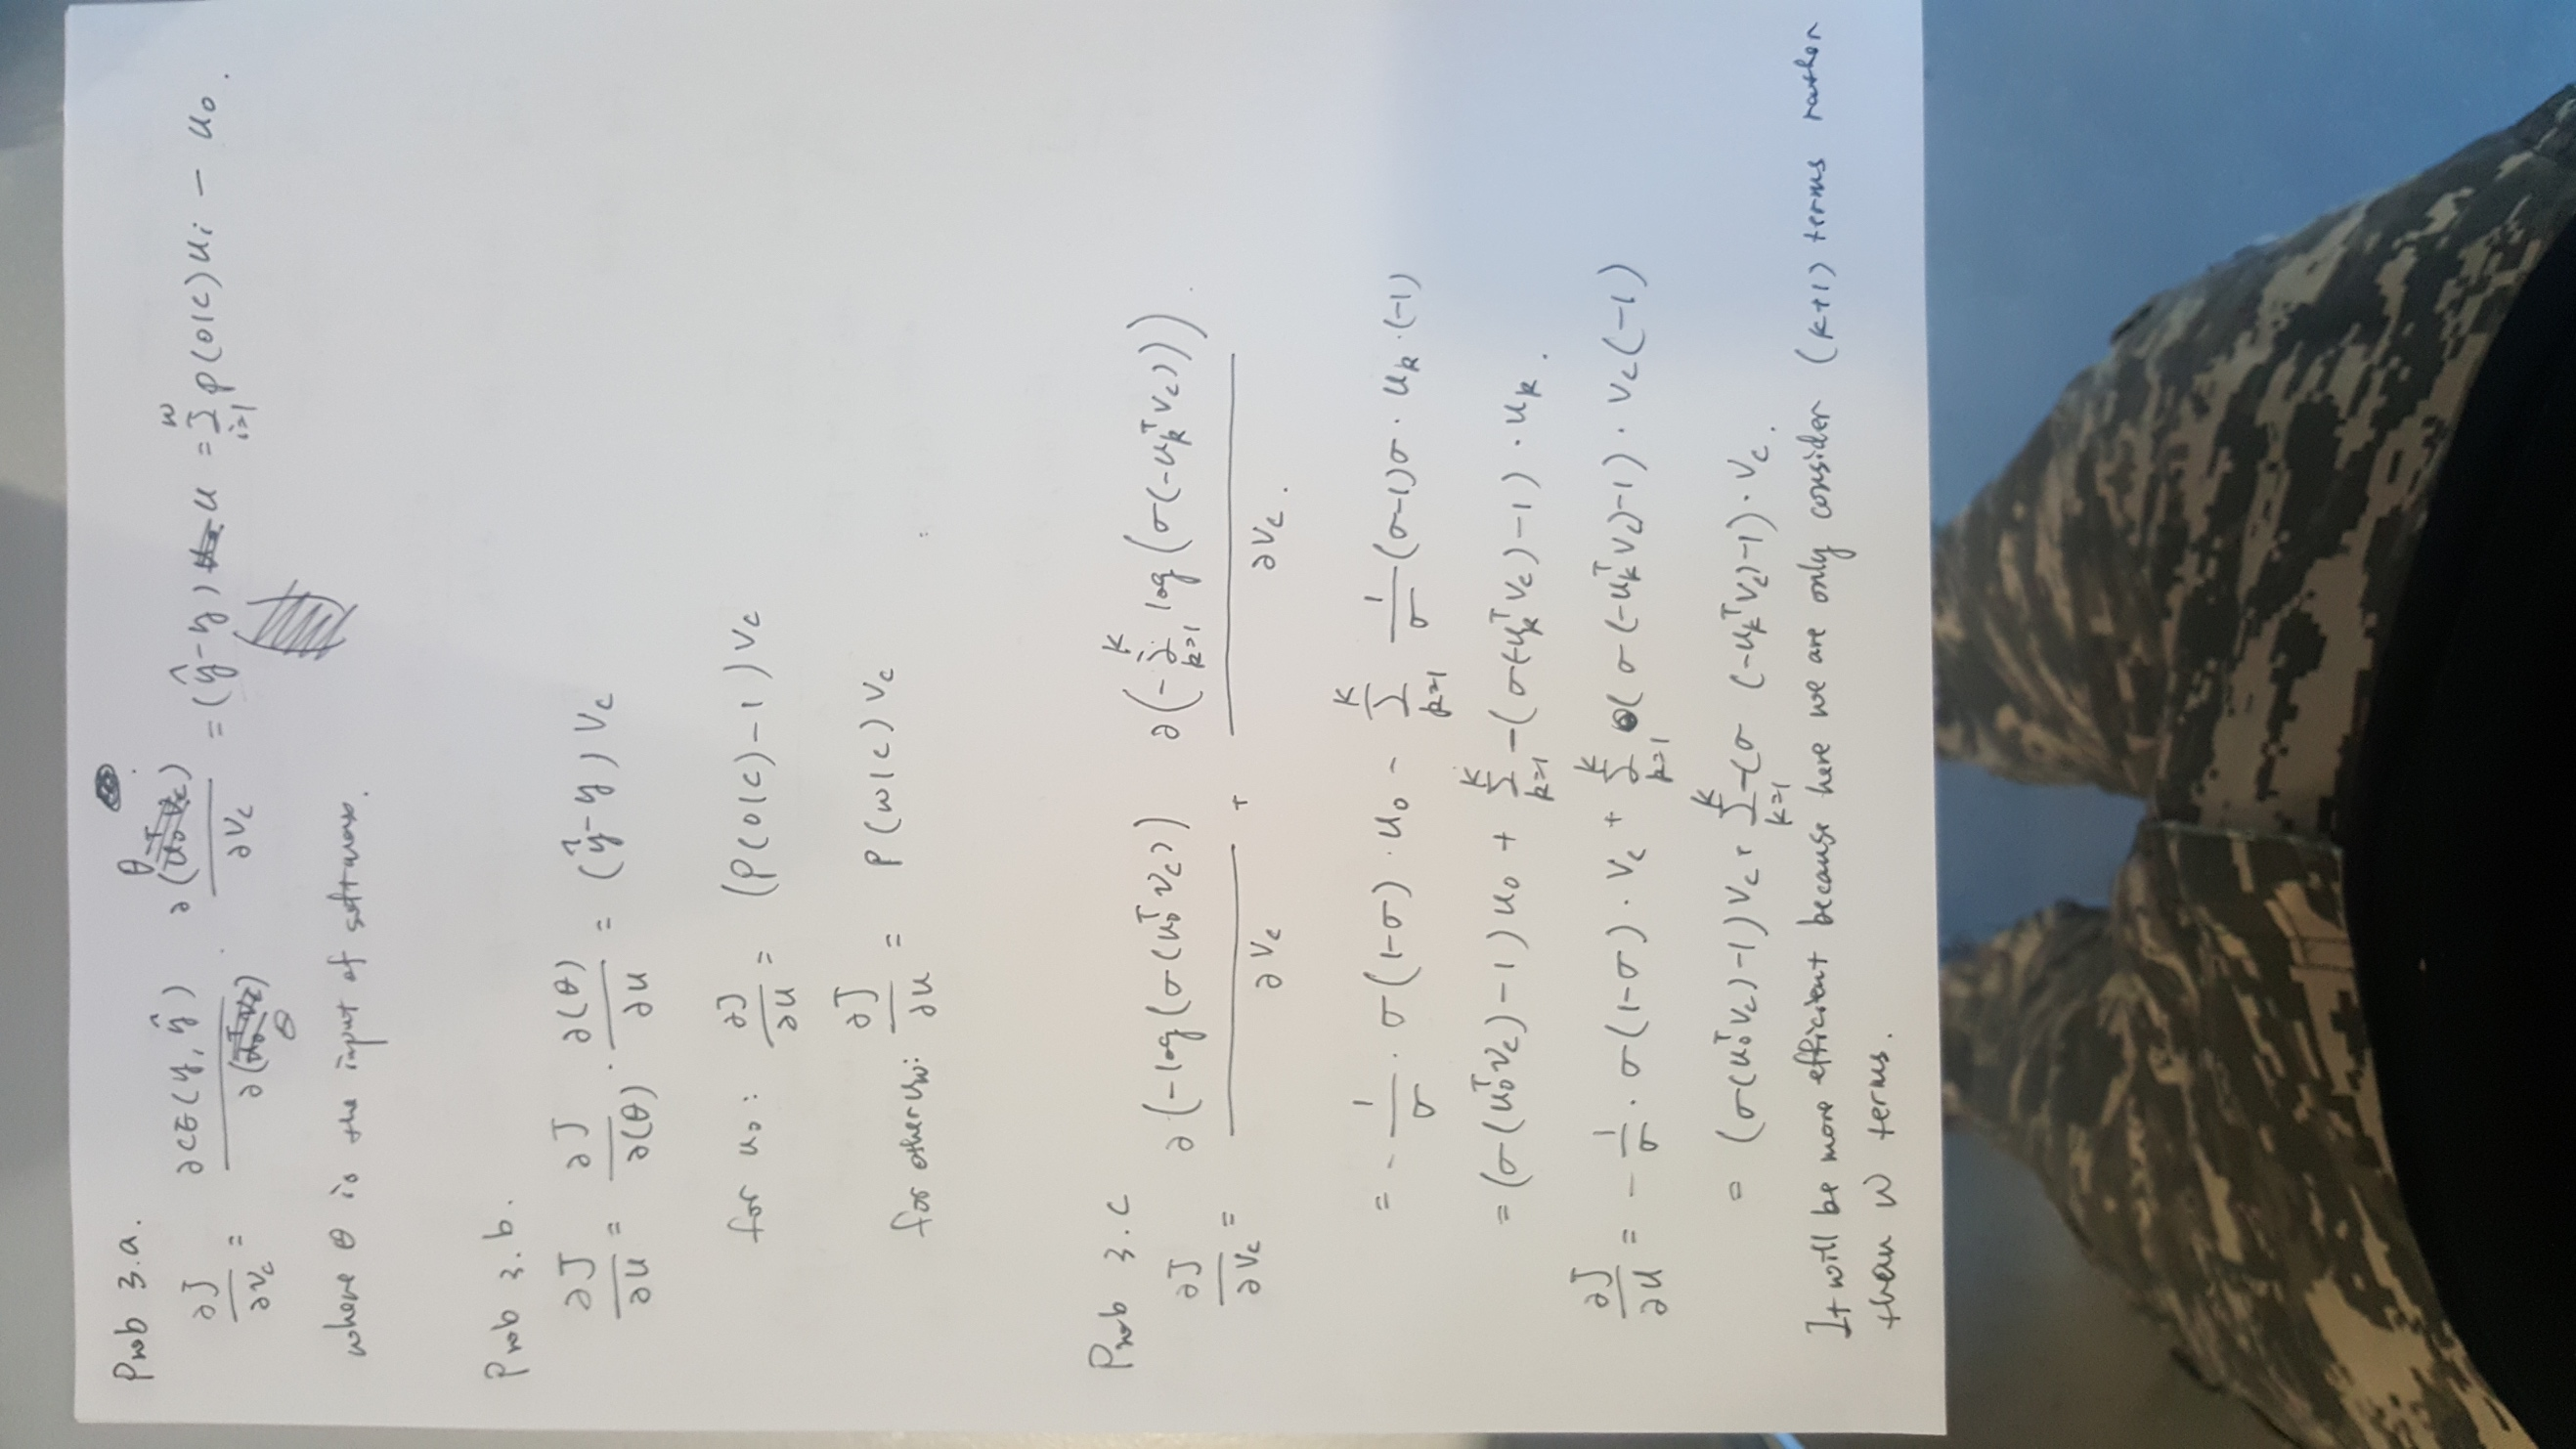 Prob 3.a.
∂J/∂Vc = ∂CE(y, ŷ)/∂(θ) · ∂(θ)/∂Vc = (ŷ-y) u = Σ_{i=1}^{W} P(o|c) ui − uo.
where θ is the input of softmax.
Prob 3.b.
∂J/∂u = ∂J/∂(θ) · ∂(θ)/∂u = (ŷ-y) Vc
for uo: ∂J/∂u = (P(o|c)-1) Vc
for other uw: ∂J/∂u = P(w|c) Vc
Prob 3.c
∂J/∂Vc = ∂(-log(σ(uo^T Vc)))/∂Vc + ∂(-Σ_{k=1}^{K} log(σ(-uk^T Vc)))/∂Vc.
= - 1/σ · σ(1-σ) · uo - Σ_{k=1}^{K} 1/σ (σ-1)σ · uk · (-1)
= (σ(uo^T Vc)-1) uo + Σ_{k=1}^{K} -(σ(-uk^T Vc)-1) · uk.
∂J/∂u = - 1/σ · σ(1-σ) · Vc + Σ_{k=1}^{K} (σ(-uk^T Vc)-1) · Vc(-1)
= (σ(uo^T Vc)-1) Vc + Σ_{k=1}^{K} -(σ (-uk^T Vc)-1) · Vc.
It will be more efficient because here we are only consider (k+1) terms rather
than W terms.